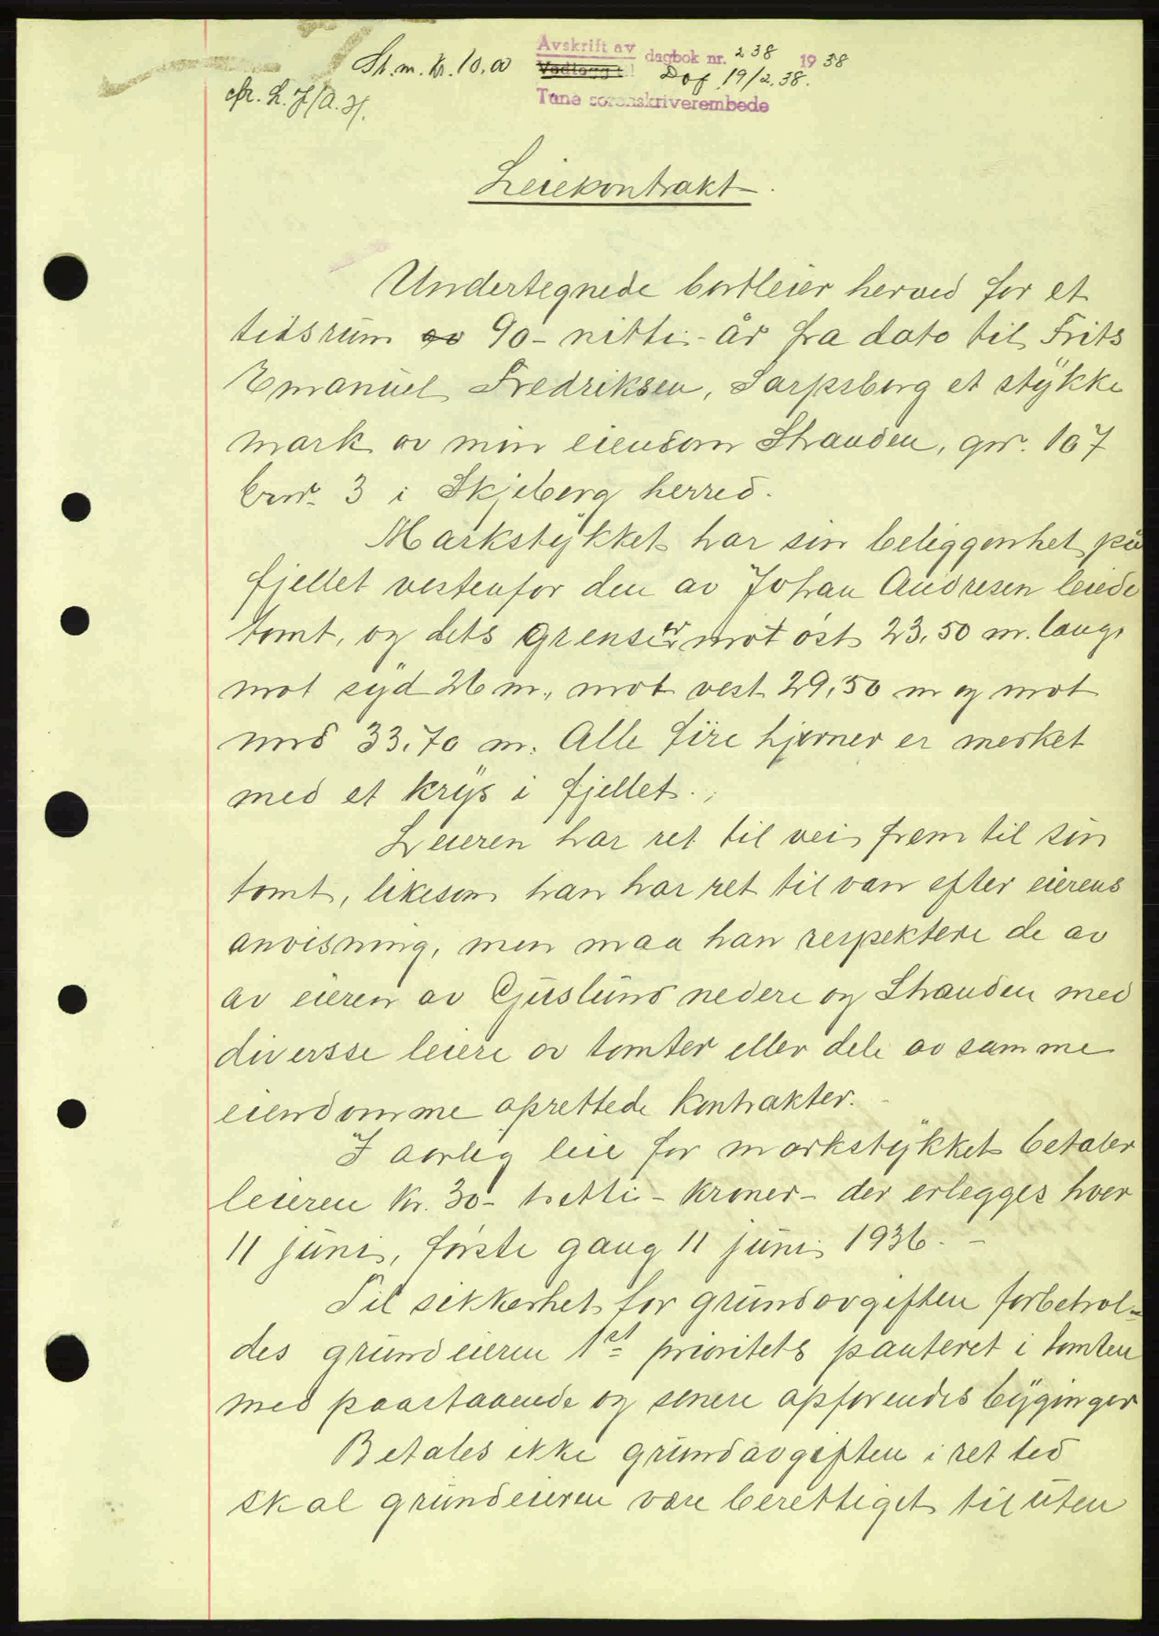 St.m. Kr. 10,00
Avskrift av dagbok nr. 238 1938
Vedlegg til Dof 19/2.38.
Tune sorenskriverembede
Leiekontrakt.
Undertegnede bortleier herved for et
tidsrum av 90 - nitti - år fra dato til Frits
Emanuel Fredriksen, Sarpsborg et stykke
mark av min eiendom Stranden, gnr. 107
brnr. 3 i Skjeberg herred.
Markstykket har sin beliggenhet på
fjellet vestenfor den av Johan Andresen leiede
tomt, og dets grenser er mot øst 23,50 m. langs
mot syd 26 m., mot vest 29,50 m og mot
nord 33,70 m. Alle fire hjørner er merket
med et krys i fjellet.
Leieren har ret til vei frem til sin
tomt, likesom han har ret til van efter eierens
anvisning, men maa han respektere de av
av eieren av Gjuslund nedere og Stranden med
diversse leiere av tomter eller dele av samme
eiendomme oprettede kontrakter.
I aarlig leie for markstykket betaler
leieren kr. 30 - tretti - kroner - der erlegges hver
11 juni, første gang 11 juni 1936. -
Til sikkerhet for grundavgiften forbehol-
des grundeieren 1st prioritets panteret i tomten
med paastaaende og senere opførendes byginger
Betales ikke grundavgiften i ret tid
skal grundeieren være berettiget til uten